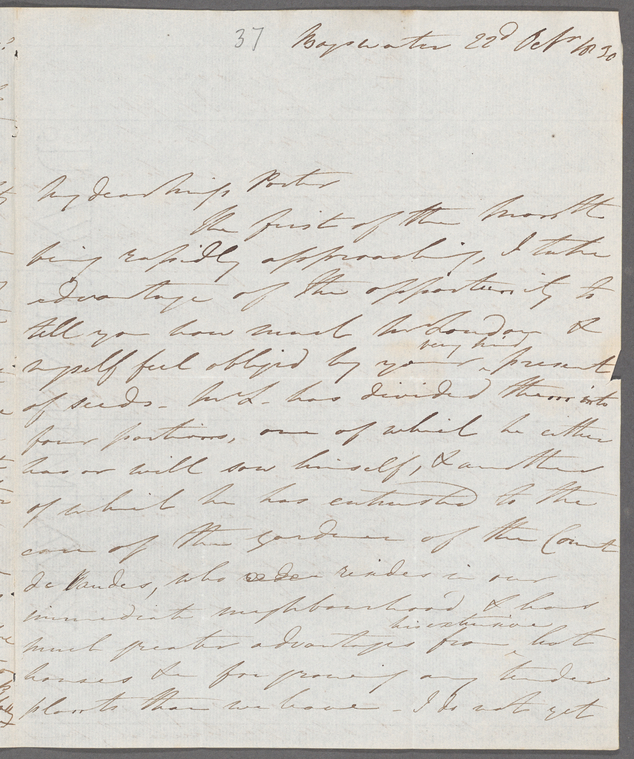 37 Bayswater 22d Octr 1830
My dear Miss Porter
The first of the Month
being rapidly approaching, I take
advantage of the opportunity to
tell you how much Mr Loudon &
very kind
myself feel obliged by your present
of seeds - Mr L. has divided them into
four portions, one of which he either
has or will sow himself, & another
of which he has entrusted to the
care of the gardener of the Count
de Vandes, who resides in our
immediate neighbourhood & has
his extensive
much greater advantages from hot
houses &c for growing any tender
plants than we have - I do not yet